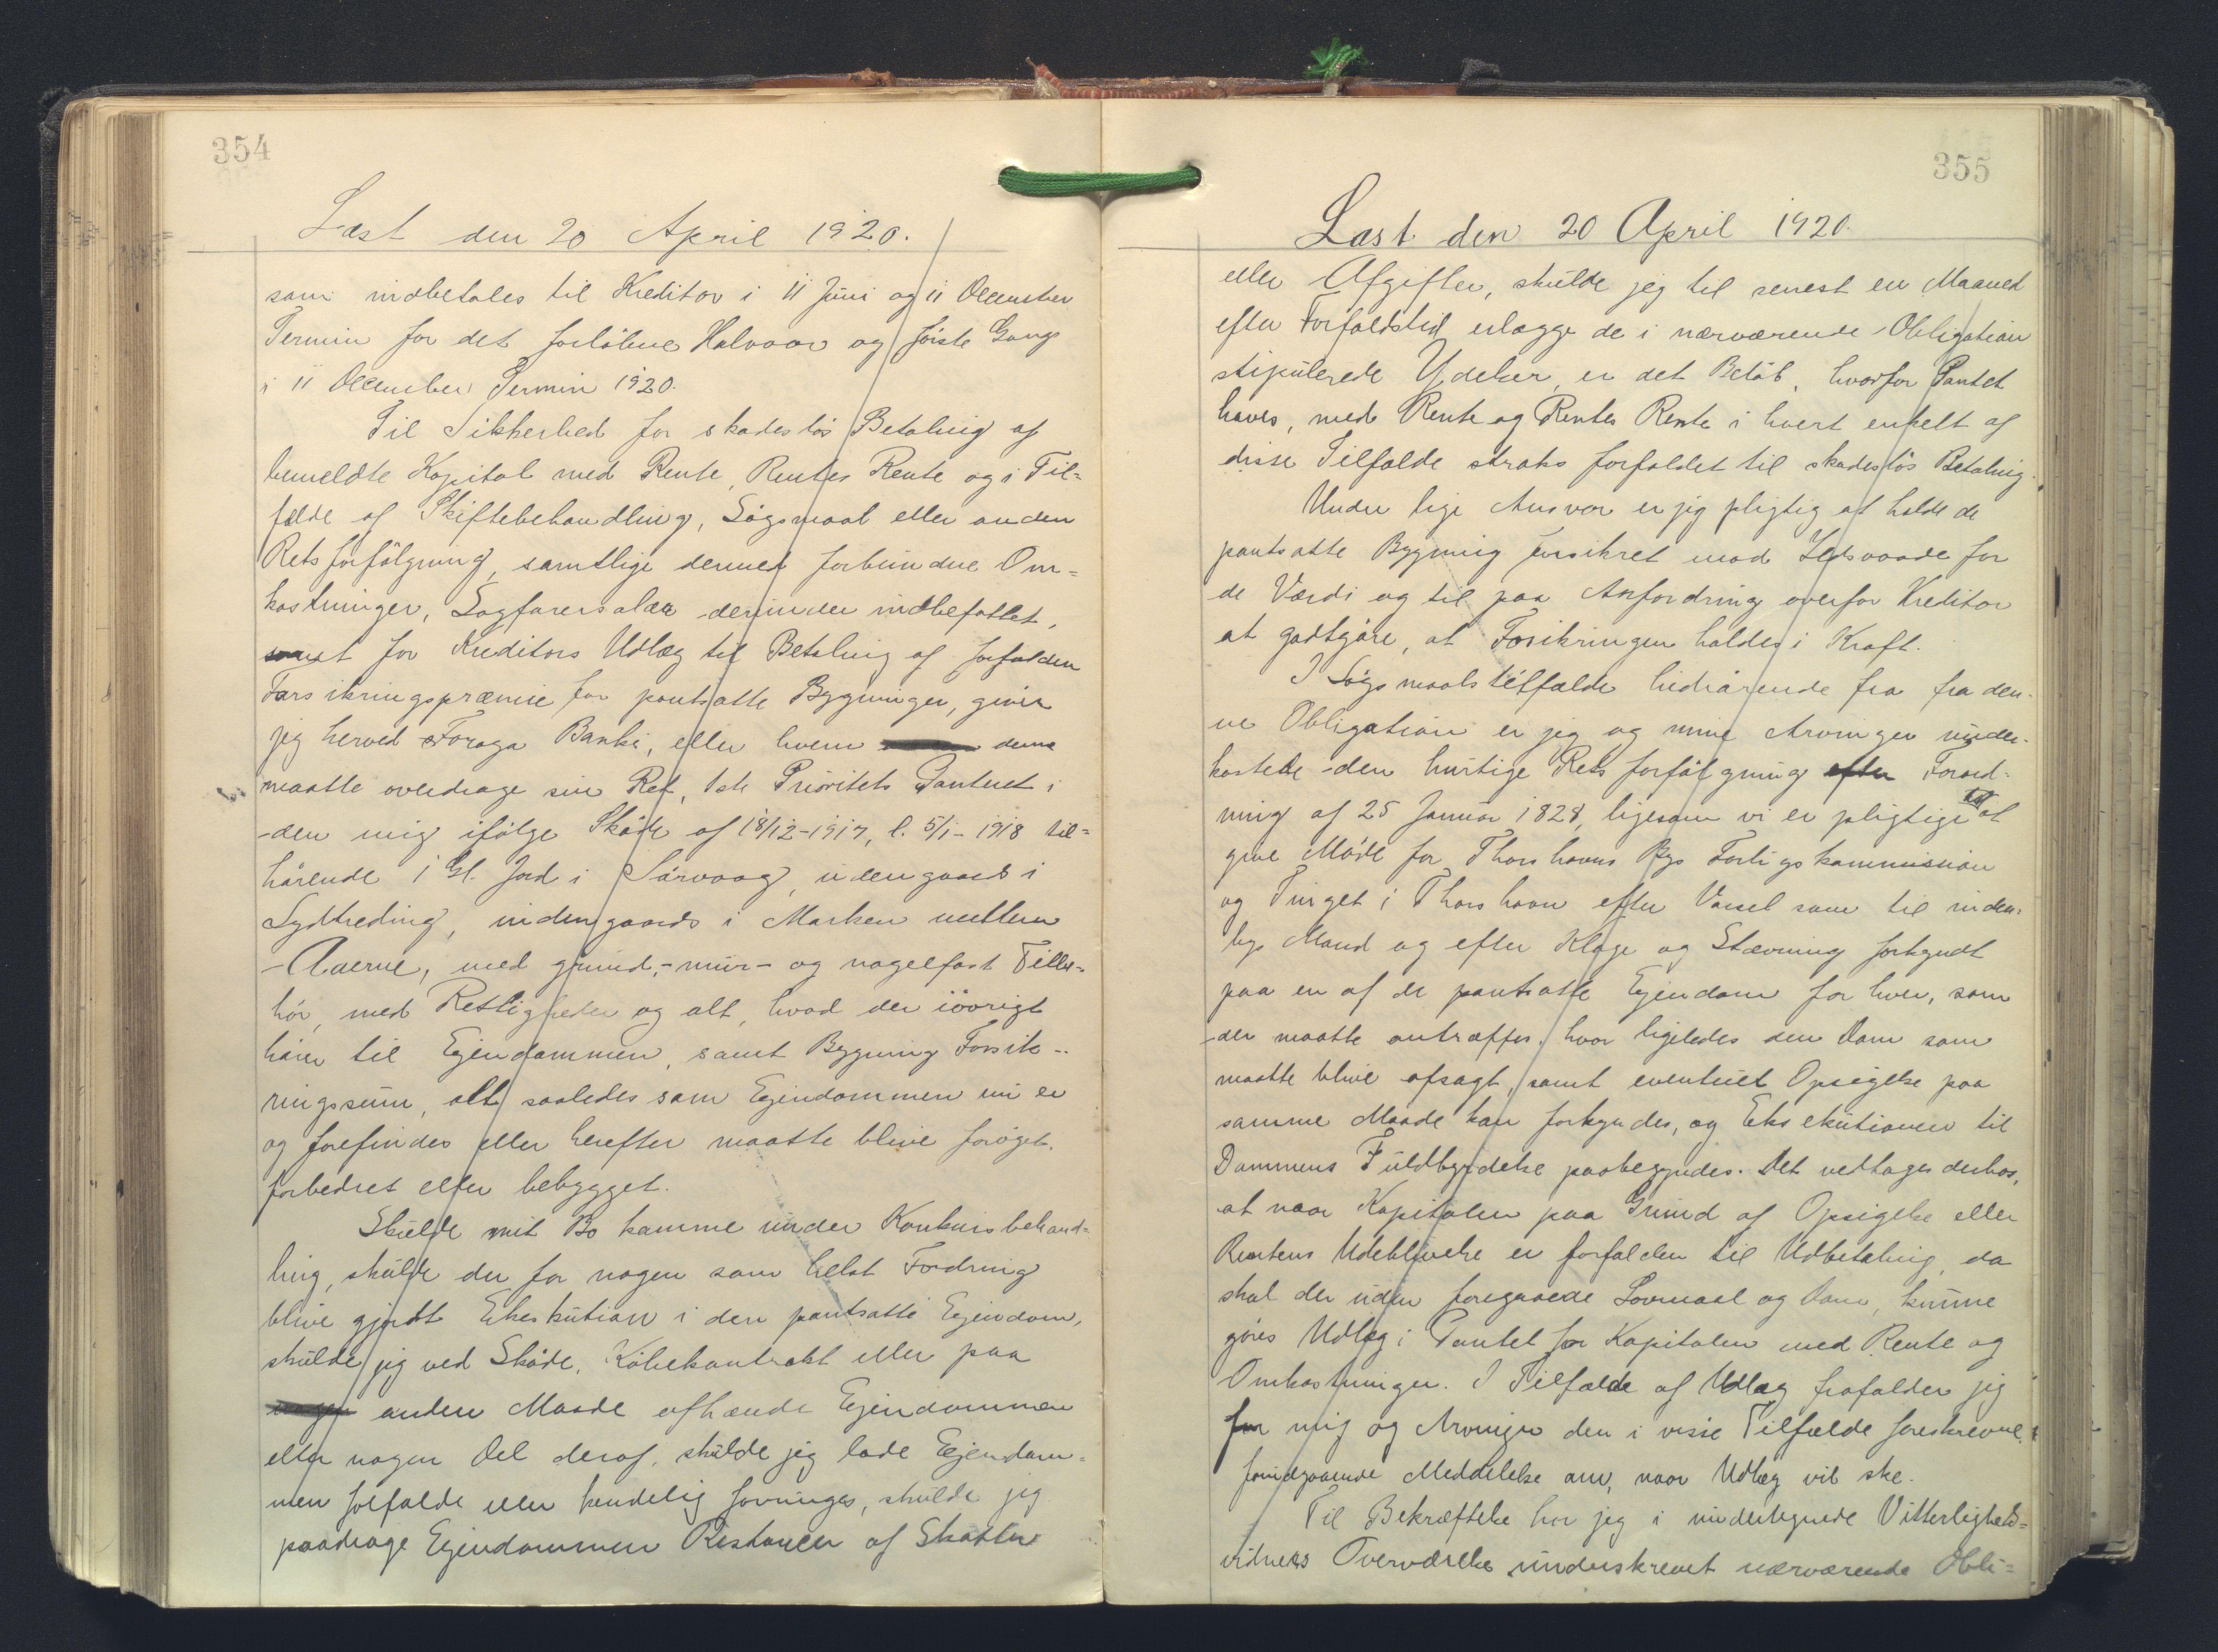 354
Læst den 20 April 1920.
som indbetales til Kreditor i 11 Juni og 11 December
Termin for det forløbne Halvaar og første Gang
i 11 December Termin 1920.
Til Sikkerhed for skadesløs Betaling af
bemeldte Kapital med Rente, Rentes Rente og i Til=
fælde af Skiftebehandling, Søgsmaal eller anden
Retsforfølgning, samtlige dermed forbundne Om=
kostninger, Sagførersalær derunder indbefattet,
samt for Kreditors Udlæg til Betaling af forfalden
Forsikringspræmie for pantsatte Bygninger, giver
jeg herved Føroya Banki, eller hvem denne
maatte overdrage sin Ret, 1ste Prioritets Panteret i
den mig ifølge Skøde af 18/12-1917, l. 5/1-1918 til=
hørende 1 Gl. Jord i Sørvaag, udengaards i
Sydtreding, indengaards i Marken mellem
Aaerne, med grund,- mur- og nagelfast Tilbe=
hør, med Rettigheder og alt, hvad der iøvrigt
hører til Ejendommen, samt Bygning Forsik=
ringssum, alt saaledes som Ejendommen nu er
og forefindes eller herefter maatte blive forøget,
forbedret eller bebygget.
Skulde mit Bo komme under Konkursbehand=
ling, skulde der for nogen som helst Fordring
blive gjordt Eksekution i den pantsatte Ejendom,
skulde jeg ved Skøde, Købekontrakt eller paa
anden Maade afhænde Ejendommen
eller nogen Del deraf, skulde jeg lade Ejendom=
men forfalde eller kendelig forringes, skulde jeg
paadrage Ejendommen Restancer af Skatter
355
Læst den 20 April 1920.
eller Afgifter, skulde jeg til senest en Maaned
efter Forfaldstid erlægge de i nærværende Obligation
stipulerede Ydelser, er det Beløb, hvorfor Pantet
haves, med Rente og Rentes Rente i hvert enkelt af
disse Tilfælde straks forfaldet til skadesløs Betaling.
Under lige Ansvar er jeg pligtig at holde de
pantsatte Bygning forsikret mod Ildsvaade for
de Værdi og til paa Anfordring overfor Kreditor
at godtgøre, at Forsikringen holdes i Kraft.
I Søgsmaalstilfælde hidrørende fra fra den-
ne Obligation er jeg og mine Arvinger under-
kastede den hurtige Retsforfølgning efter Forord=
ning af 25 Januar 1828, ligesom vi er pligtige til at
give Møde for Thorshavns Bys Forligskommission
og Tinget i Thorshavn efter Varsel som til inden=
bys Mand og efter Klage og Stævning forkyndt
paa en af de pantsatte Ejendom for hver, som
der maatte antræffes, hvor ligeledes den Dom som
maatte blive afsagt, samt eventuel Opsigelse paa
samme Maade kan forkyndes, og Eksekutionen til
Dommens Fuldbyrdelse paabegyndes. Det vedtages derhos,
at naar Kapitalen paa Grund af Opsigelse eller
Rentens Udeblivelse er forfalden til Udbetaling, da
skal der uden foregaaede Lovmaal og Dom, kunne
gøres Udlæg i Pantet for Kapitalen med Rente og
Omkostninger. I Tilfælde af Udlæg frafalder jeg
for mig og Arvinger den i visse Tilfælde foreskrevne
forudgaaende Meddelelse om, naar Udlæg vil ske.
Til Bekræftelse har jeg i undertegnede Vitterligheds=
vidners Overværelse underskrevet nærværende Obli=